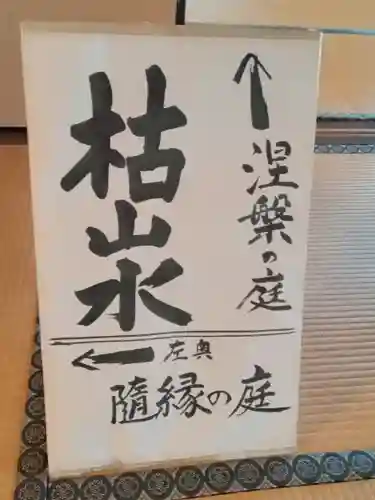 ↑涅槃の庭
枯山水
←左奥
隨縁の庭